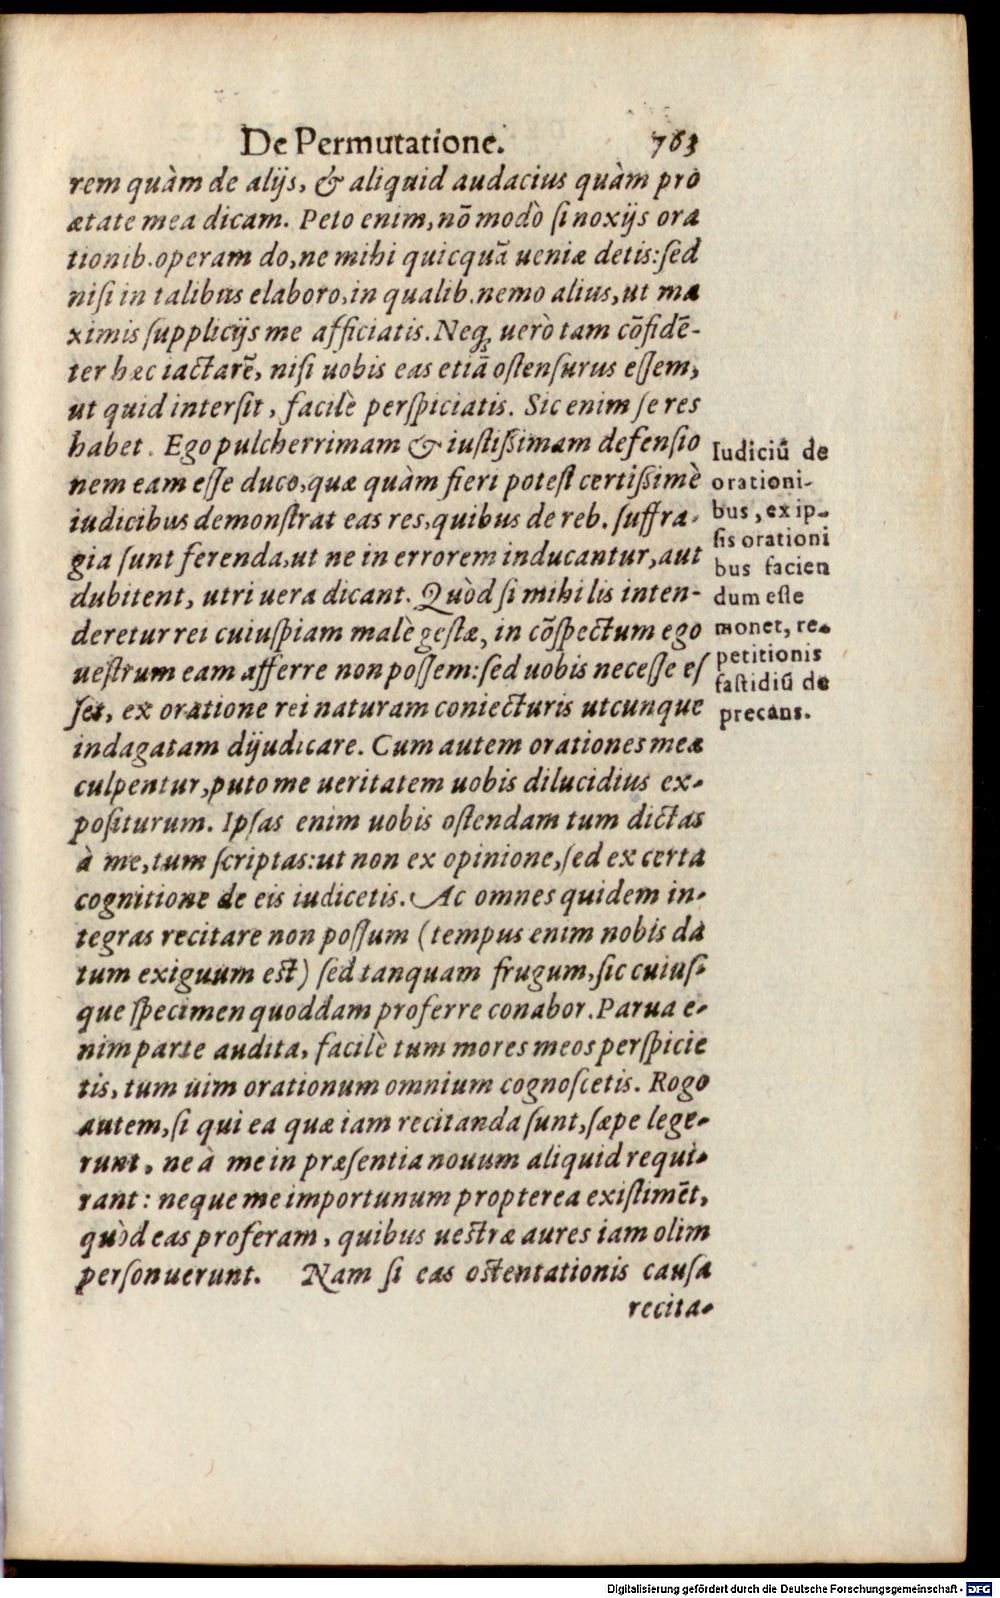 De Permutatione. 763
rem quàm de alijs, & aliquid audacius quàm pro
ætate mea dicam. Peto enim, nõ modò ſi noxijs ora
tionib. operam do, ne mihi quicquã ueniæ detis: ſed
niſi in talibus elaboro, in qualib. nemo alius, ut ma
ximis ſupplicijs me afficiatis. Neq; uerò tam cõfidẽ-
ter hæc iactarẽ, niſi uobis eas etiã oſtenſurus eſſem,
ut quid interſit, facilè perſpiciatis. Sic enim ſe res
habet. Ego pulcherrimam & iuſtiſſimam defenſio
nem eam eſſe duco, quæ quàm fieri poteſt certiſſimè
iudicibus demonſtrat eas res, quibus de reb. ſuffra-
gia ſunt ferenda, ut ne in errorem inducantur, aut
dubitent, utri uera dicant. Quòd ſi mihi lis inten-
deretur rei cuiuſpiam malè geſtæ, in cõſpectum ego
ueſtrum eam afferre non poſſem: ſed uobis neceſſe eſ
ſet, ex oratione rei naturam coniecturis utcunque
indagatam dijudicare. Cum autem orationes meæ
culpentur, puto me ueritatem uobis dilucidius ex-
poſiturum. Ipſas enim uobis oſtendam tum dictas
à me, tum ſcriptas: ut non ex opinione, ſed ex certa
cognitione de eis iudicetis. Ac omnes quidem in-
tegras recitare non poſſum (tempus enim nobis da
tum exiguum eſt) ſed tanquam frugum, ſic cuiuſ-
que ſpecimen quoddam proferre conabor. Parua e-
nim parte audita, facilè tum mores meos perſpicie
tis, tum uim orationum omnium cognoſcetis. Rogo
autem, ſi qui ea quæ iam recitanda ſunt, ſæpe lege-
runt, ne à me in præſentia nouum aliquid requi-
rant: neque me importunum propterea exiſtimẽt,
quòd eas proferam, quibus ueſtræ aures iam olim
perſonuerunt. Nam ſi eas oſtentationis cauſa
recita-
Iudiciũ de
orationi-
bus, ex ip-
ſis orationi
bus facien
dum eſſe
monet, re-
petitionis
faſtidiũ de
precans.
Digitalisierung gefördert durch die Deutsche Forschungsgemeinschaft - DFG